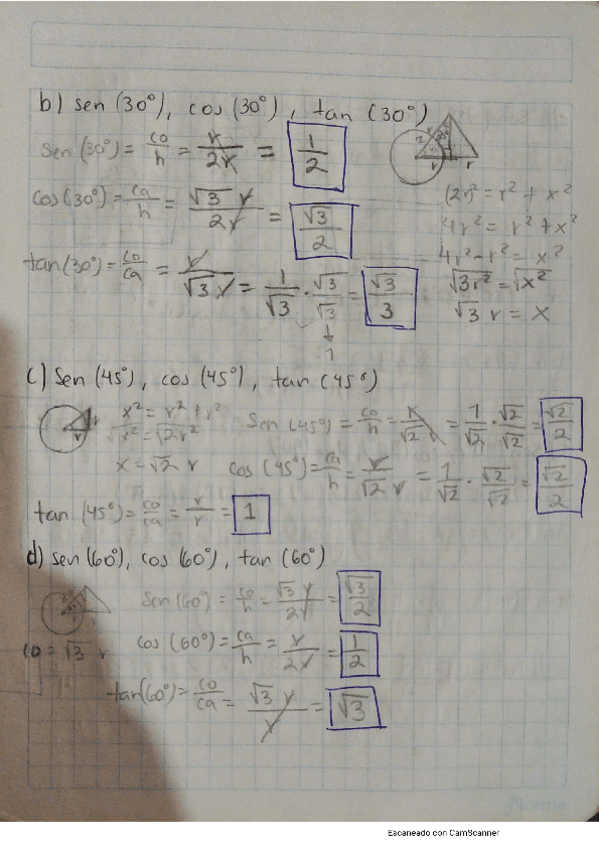 b) sen (30°), cos (30°), tan (30°)
sen (30°) = co/h = r/2r = 1/2
(2r)² = r² + x²
cos (30°) = ca/h = √3 r/2r = √3/2
4r² = r² + x²
4r² - r² = x²
tan (30°) = co/ca = r/√3 r = 1/√3 · √3/√3 = √3/3
√3r² = √x²
√3 r = x
↓
1
c) Sen (45°), cos (45°), tan (45°)
x² = r² + r²
√x² = √2r²
x = √2 r
Sen (45°) = co/h = r/√2 r = 1/√2 · √2/√2 = √2/2
cos (45°) = ca/h = r/√2 r = 1/√2 · √2/√2 = √2/2
tan (45°) = co/ca = r/r = 1
d) sen (60°), cos (60°), tan (60°)
Sen (60°) = co/h = √3 r/2r = √3/2
co = √3 r
cos (60°) = ca/h = r/2r = 1/2
tan (60°) = co/ca = √3 r/r = √3
Norma
Escaneado con CamScanner